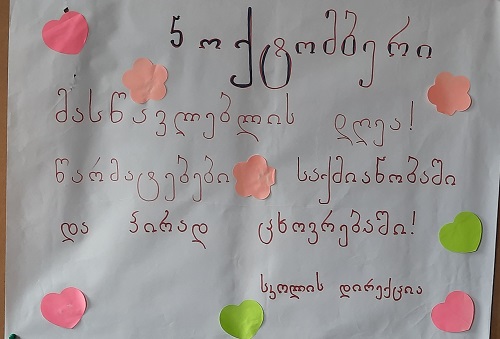 5 ოქტომბერი
მასწავლებლის დღეა!
წარმატებები საქმიანობაში
და პირად ცხოვრებაში!
სკოლის დირექცია